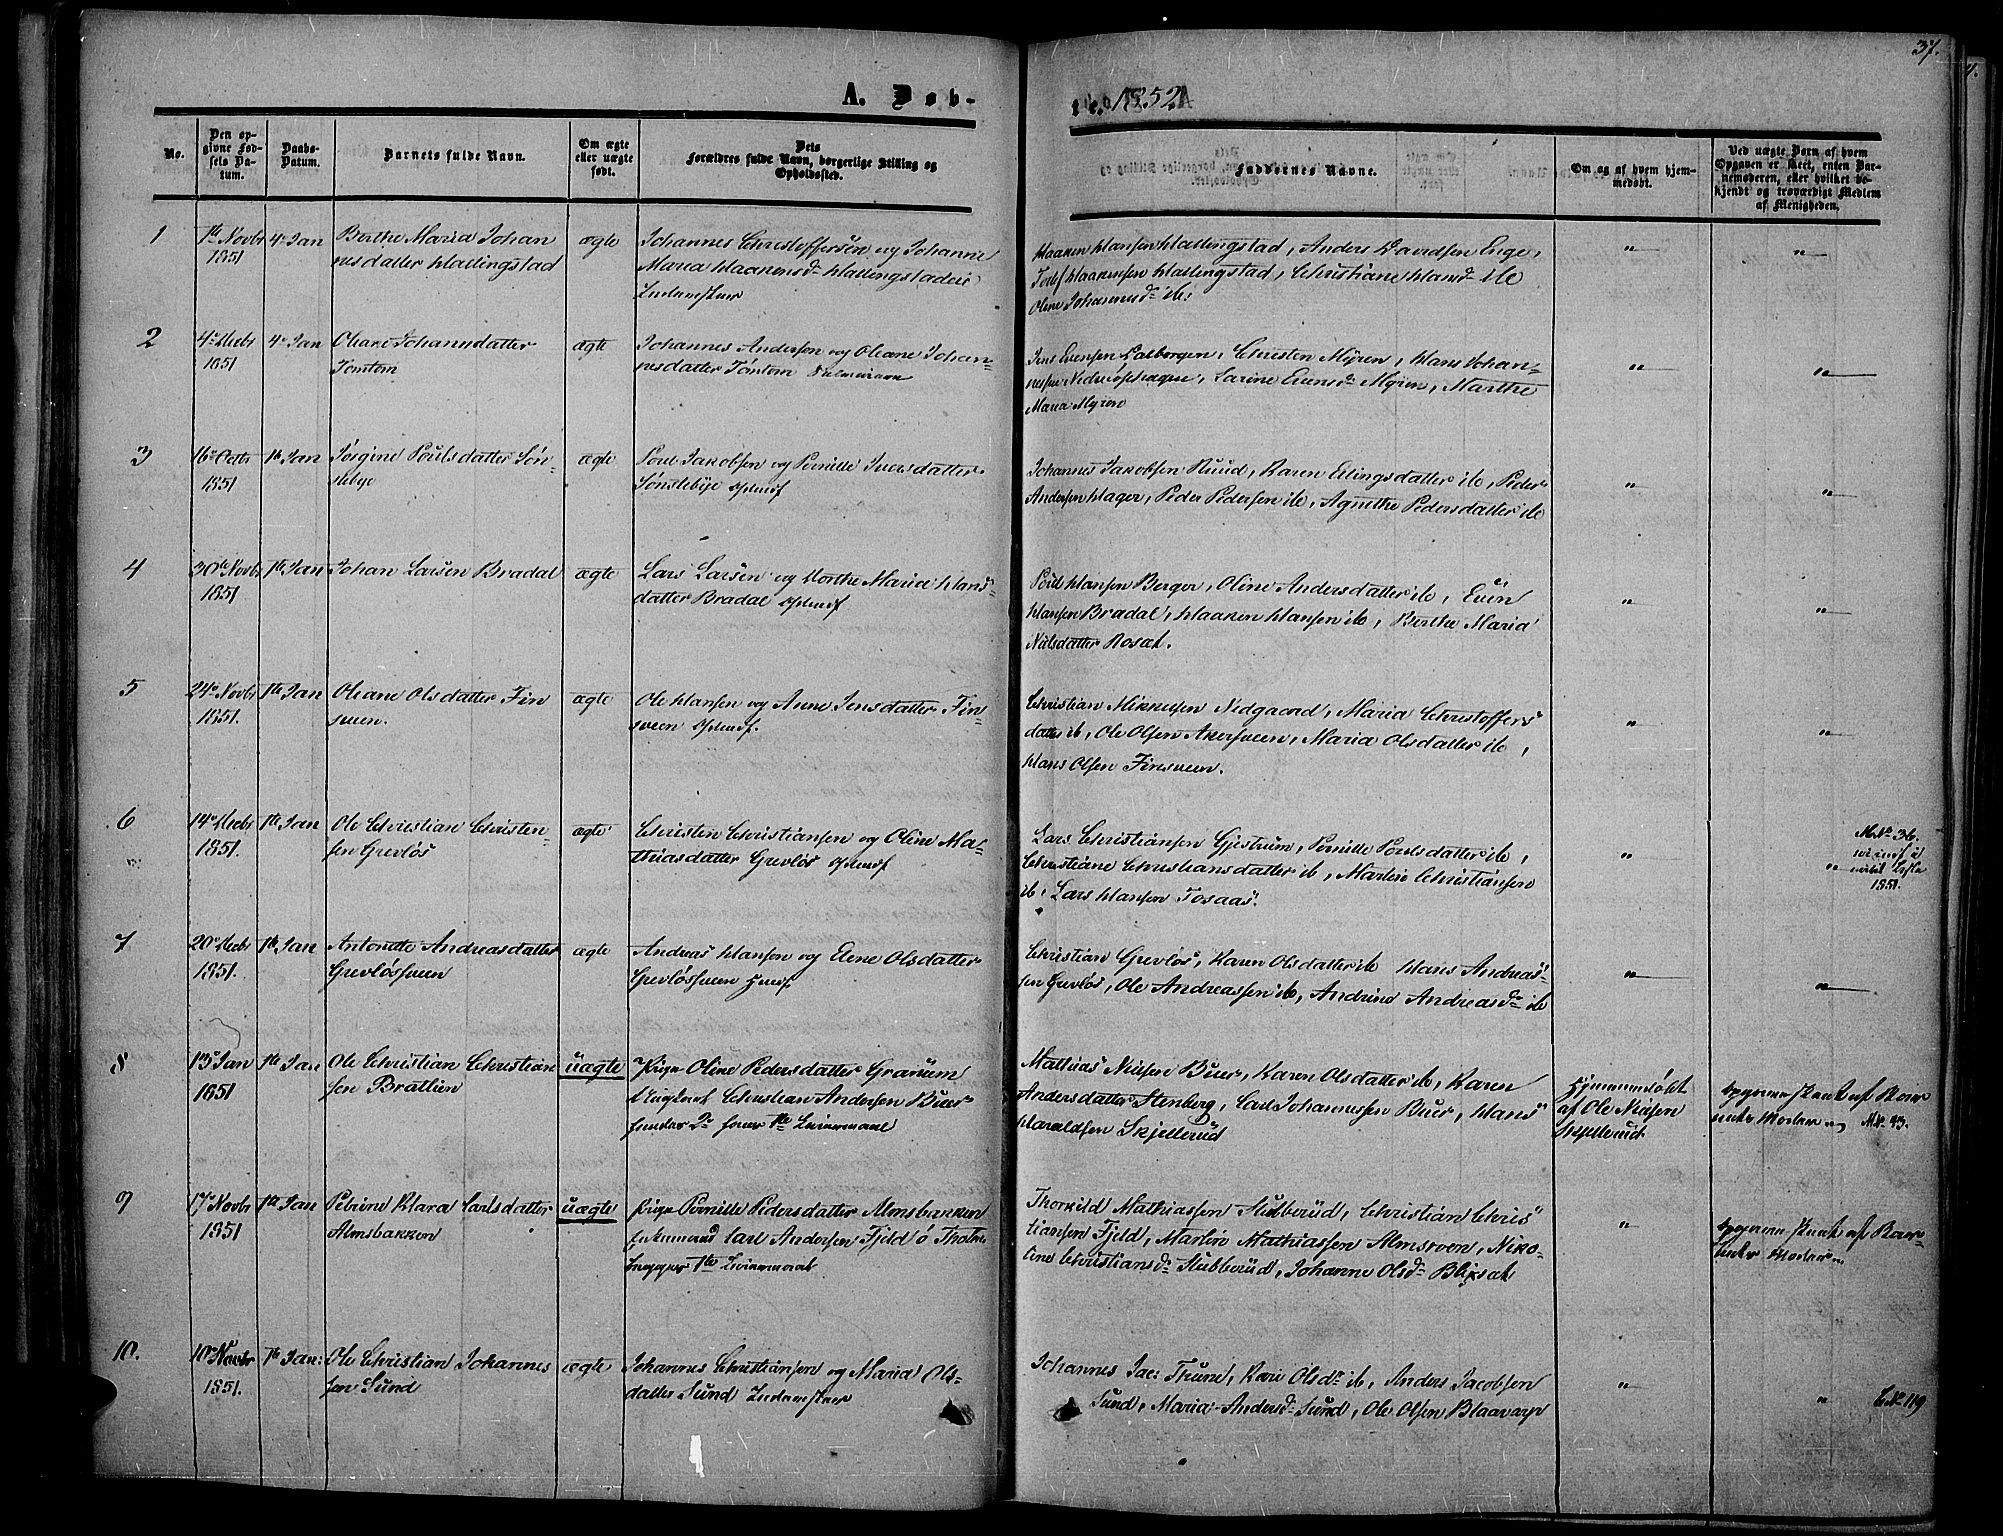 37.
A. Døb-
te. 1852
No.
Den op-
givne Fød-
sels Da-
tum.
Daabs-
Datum.
Barnets fulde Navn.
Om ægte
eller uægte
født.
Dets
Forældres fulde Navn, borgerlige Stilling og
Opholdssted.
Faddernes Navne.
Om og af hvem hjem-
medøbt.
Ved uægte Børn af hvem
Opgaven er skeet, enten Bar-
nemoderen, eller hvilket be-
kjendt og troværdigt Medlem
af Menigheden.
1
1te Novbr
1851
4de Jan
Berthe Maria Johan
nesdatter Hallingstad
ægte
Johannes Christoffersen og Johanne
Maria Haakensdr Hallingstadeie
Inderster
Haaken Hansen Hallingstad, Anders Davidsen Enge,
Tollef Haakensen Hallingstad, Christiane Hansdr ib
Oline Johannesdr ib.
"
"
2
4de Decbr
1851
4de Jan
Oleane Johannsdatter
Tomtom
ægte
Johannes Andersen og Oleane Johan-
nesdatter Tomtom
Jens Evensen Dalborgen, Christen Myren, Hans Johan-
nessen Nedreophagen, Karine Evensdr Myren, Marthe
Maria Myren
"
"
3
16de Octbr
1851
1te Jan
Jørgine Poulsdatter Søn-
stebye
ægte
Poul Jakobsen og Pernille Iversdatter
Sønstebye
Johannes Jakobsen Ruud, Karen Erlingsdatter ib, Peder
Andersen Hager, Peder Pedersen ib, Agnethe Pedersdatter ib
"
"
4
30te Novbr
1851
1te Jan
Johan Larsen Bradal
ægte
Lars Larsen og Dorthe Maria Hans
datter Bradal
Poul Hansen Berger, Oline Andersdatter ib, Even
Hansen Bradal, Haaken Hansen ib, Berthe Maria
Nielsdatter Rosæt.
"
"
5
24de Novbr
1851.
1te Jan
Oleane Olsdatter Fin
sveen.
ægte
Ole Hansen og Anne Jensdatter Fin-
sveen
Christian Mikkelsen Nedgaard, Maria Christoffers
datter ib, Ole Olsen Akersveen, Maria Olsdatter ib,
Hans Olsen Finsveen.
"
"
6
14de Decbr
1851.
1te Jan
Ole Christian Christen-
sen Grevløs
ægte
Christen Christiansen og Oline Ma-
thiasdatter Grevløs
Lars Christiansen Gjestrum, Pernille Poulsdatter ib,
Christiane Christiansdatter ib, Martin Christiansen
ib, Lars Hansen Fosaas.
"
"
M No 36.
1851.
7
20de Decbr
1851.
1te Jan
Antonette Andreasdatter
Grevløssveen
ægte
Andreas Hansen og Elene Olsdatter
Grevløssveen
Christian Grevløs, Karen Olsdatter ib Hans Andreas
sen Grevløs, Ole Andreassen ib, Andrine Andreasdr ib
"
"
8
13de Jan
1851
1te Jan
Ole Christian Christian
sen Brattlien
uægte
Pige Oline Pedersdatter Granum
Christian Andersen Buer
1te Leiermaal
Mathias Nielsen Buer, Karen Olsdatter ib, Karen
Andersdatter Stenberg, Carl Johannessen Buer, Hans
Haraldsen Skjellerud
Hjemmedøbt
af Ole Nilsen
Skjellerud
Opgivensskeet af Barn
nets Moder M No 43.
9
17de Novbr
1851
1te Jan
Petrine Klara Carlsdatter
Almsbakken
uægte
Pige Pernille Pedersdatter Almsbakken
Carl Andersen Fjeld
1te Leiermaal
Thorkild Mathiassen Stubberud, Christian Chris
tiansen Fjeld, Martin Mathiassen Almsveen, Niko-
line Christiansdr Stubberud, Johanne Olsdr Blixsæt
"
af Bar-
nets Moder
10.
10de Novbr
1851.
1te Jan.
Ole Christian Johannes
sen Sund
ægte
Johannes Christiansen og Maria Ols-
datter Sund Inderster
Johannes Jac: Thune, Kari Olsdr ib, Anders Jacobsen
Sund, Maria Andersdr Sund, Ole Olsen Blaavarp
"
"
C No 119